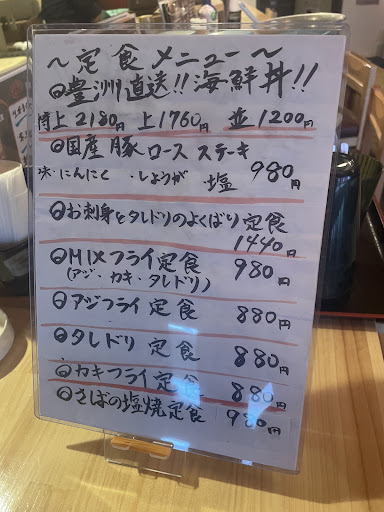 ～定食メニュー～
◎豊洲直送!!海鮮丼!!
特上2180円 上1760円 並1200円
◎国産豚ロースステーキ
味・にんにく ・しょうが 塩 980円
◎お刺身とタレドリのよくばり定食
1440円
◎MIXフライ定食 980円
(アジ・カキ・タレドリ)
◎アジフライ定食 880円
◎タレドリ定食 880円
◎カキフライ定食 880円
◎さばの塩焼定食 980円